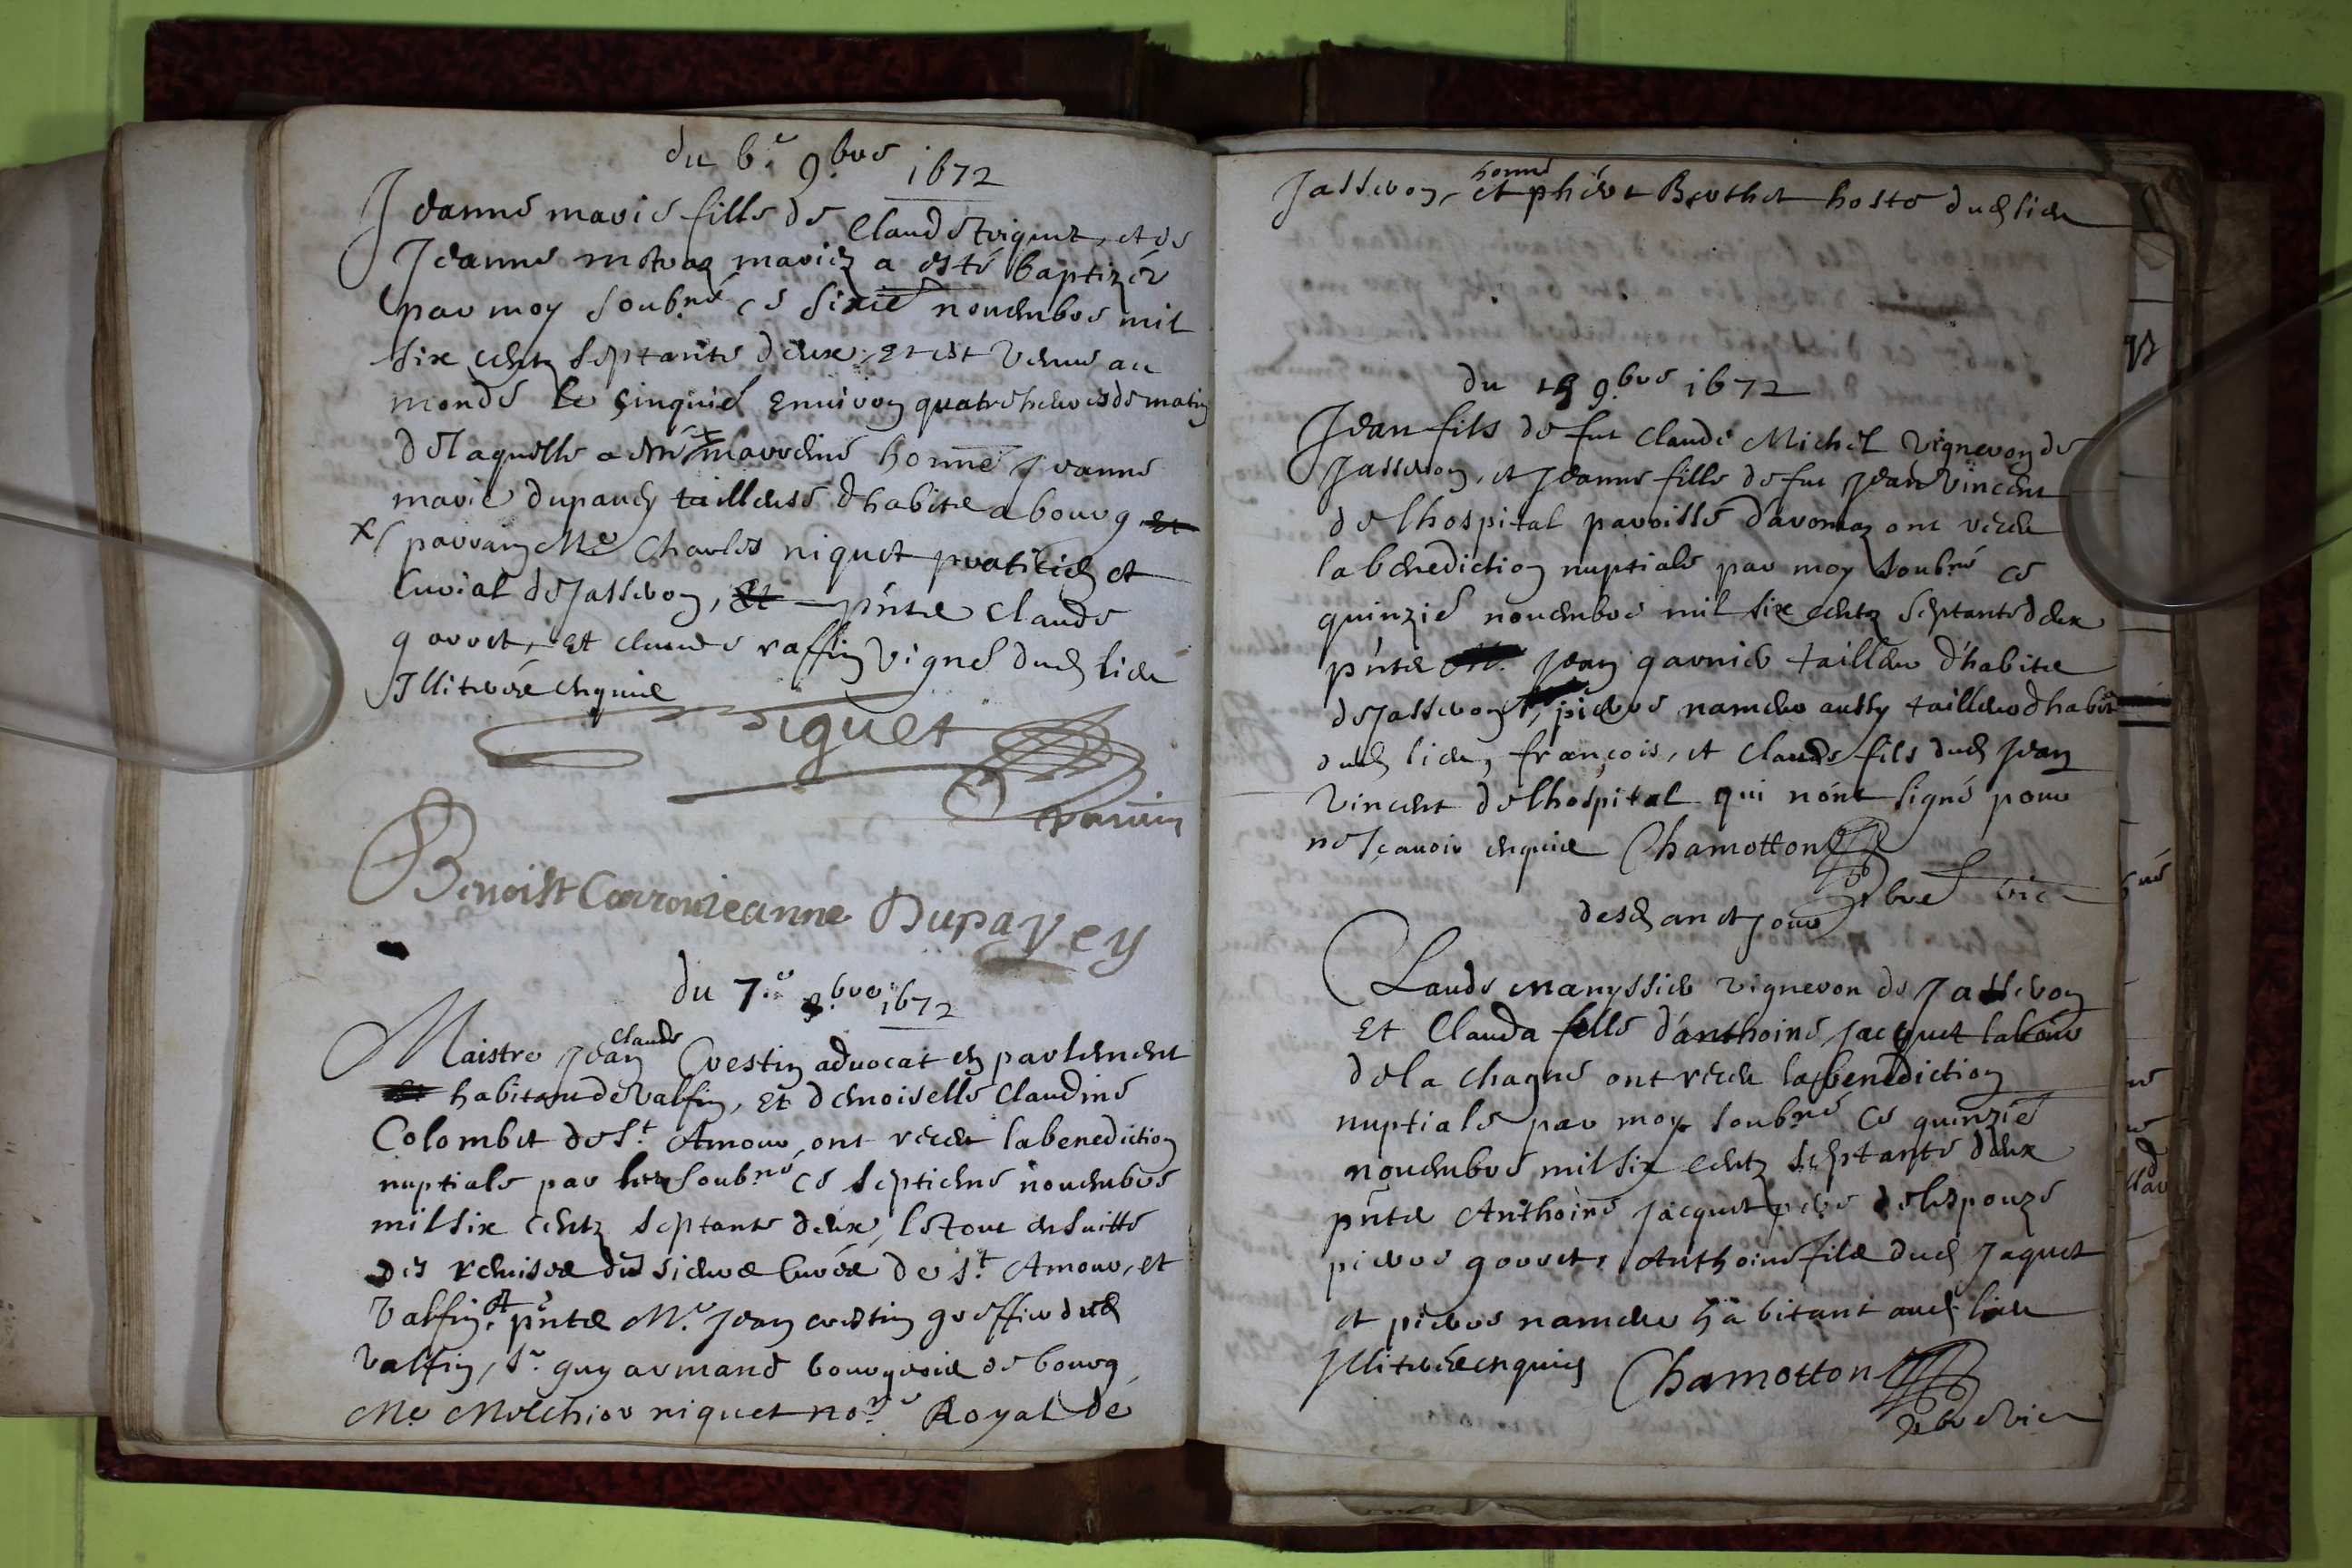 du 6.e 9.bre 1672
Jeanne marie fille de Claude
Jeanne mariez a esté baptizée
par moy soub.né ce sixie novembre mil
six centz septante deux, et est venue au
monde le cinquié environ quatre heures de matin
de laquelle a esté marreine honne Jeanne
marie dupavey tailleuse dhabitz a bourg et
x parrain Me Charles niquet praticien et
Curial de Jasseron, et pñtz Claude
gorret, et Claude raffin vigne dud lieu
Illiterés enquis
Niquet
Benoist Jeanne Dupavey
du 7.e 9.bre 1672
Claude
Maistre Jean Crestin advocat en parlement
et habitant de Valfin, et demoiselle Claudine
Colombet de St Amour, ont receu la benediction
nuptiale par soub.né ce septieme novembre
mil six centz septante deux, le tout ensuitte
des remises des sieurs Curés de St Amour, et
Valfin, et pñtz M.e Jean crestin greffier dud
Valfin, Sr guy armand bourgeois de bourg,
Me Melchior niquet no.re Royal de
honne
Jasseron, et phébt Berthet hoste dud lieu
du 15 9.bre 1672
Jean fils de fut Claude Michel vigneron de
Jasseron, et Jeanne fille de fut Jean Vincent
de lhospital paroisse d'avornaz ont receu
la benediction nuptiale par moy soub.né ce
quinzié novembre mil six centz septante deux
pñtz Jean garnier tailleur d'habitz
de Jasseron, pierre nameur aussy tailleur dhabit
dud lieu, françois, et Claude fils dud Jean
Vincent de lhospital qui n'ont signé pour
ne sçavoir enquis Chamotton
pbre vic
desd an et jour
Claude manyssier vigneron de Jasseron
Et Clauda fille d'anthoine jacquet
de la chagne ont receu la benediction
nuptiale par moy soub.né ce quinzié
novembre mil six centz septante deux
pñtz Anthoine jacquet pere de lespouze
pierre gorret, Anthoine filz dud Jaquet
et pierre nameur habitant aud lieu
Illiterés enquis Chamotton
pbre vic